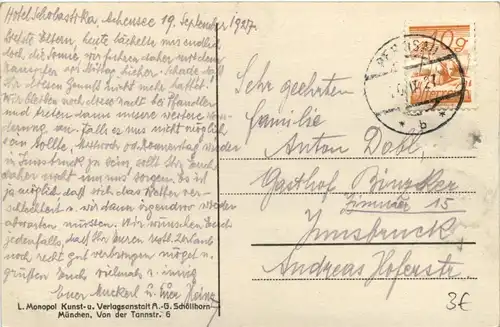 Hotel Scholastika Achensee 19. September 1927.
Liebste Eltern, heute lächelte uns endlich
doch die Sonne, wir fuhren daher mit dem
Dampfer am Mittag hieher. Schade daß
Ihr diesen Genuß nicht mehr hattet.
Wir bleiben noch diese nacht bei Pfandler
und treten dann unsere weitere
an. Falls es uns nicht möglich
sein sollte, Mittwoch od. Donnerstag wieder
in Innsbruck zu sein, sollt Ihr Euch
daher nicht um uns sorgen. Es ist
ja möglich daß sich das Wetter ver-
schlechtert u. wir dann irgendwo
abwarten müssten. Wir wünschen Euch
jedenfalls, daß Ihr Euren restl. Urlaub
noch recht gut verbringen mögel u.
grüßen Euch vielmals u. innig
Euer Muckerl u. Euer Heinz
L. Monopol Kunst- u. Verlagsanstalt A.-G. Schöllhorn
München, Von der Tannstr. 6
10 g
PERTISAU
* b *
Sehr geehrten
Familie
Anton Dobl,
Gasthof
Zimmer 15
Innsbruck
Andreas Hoferstr
3€